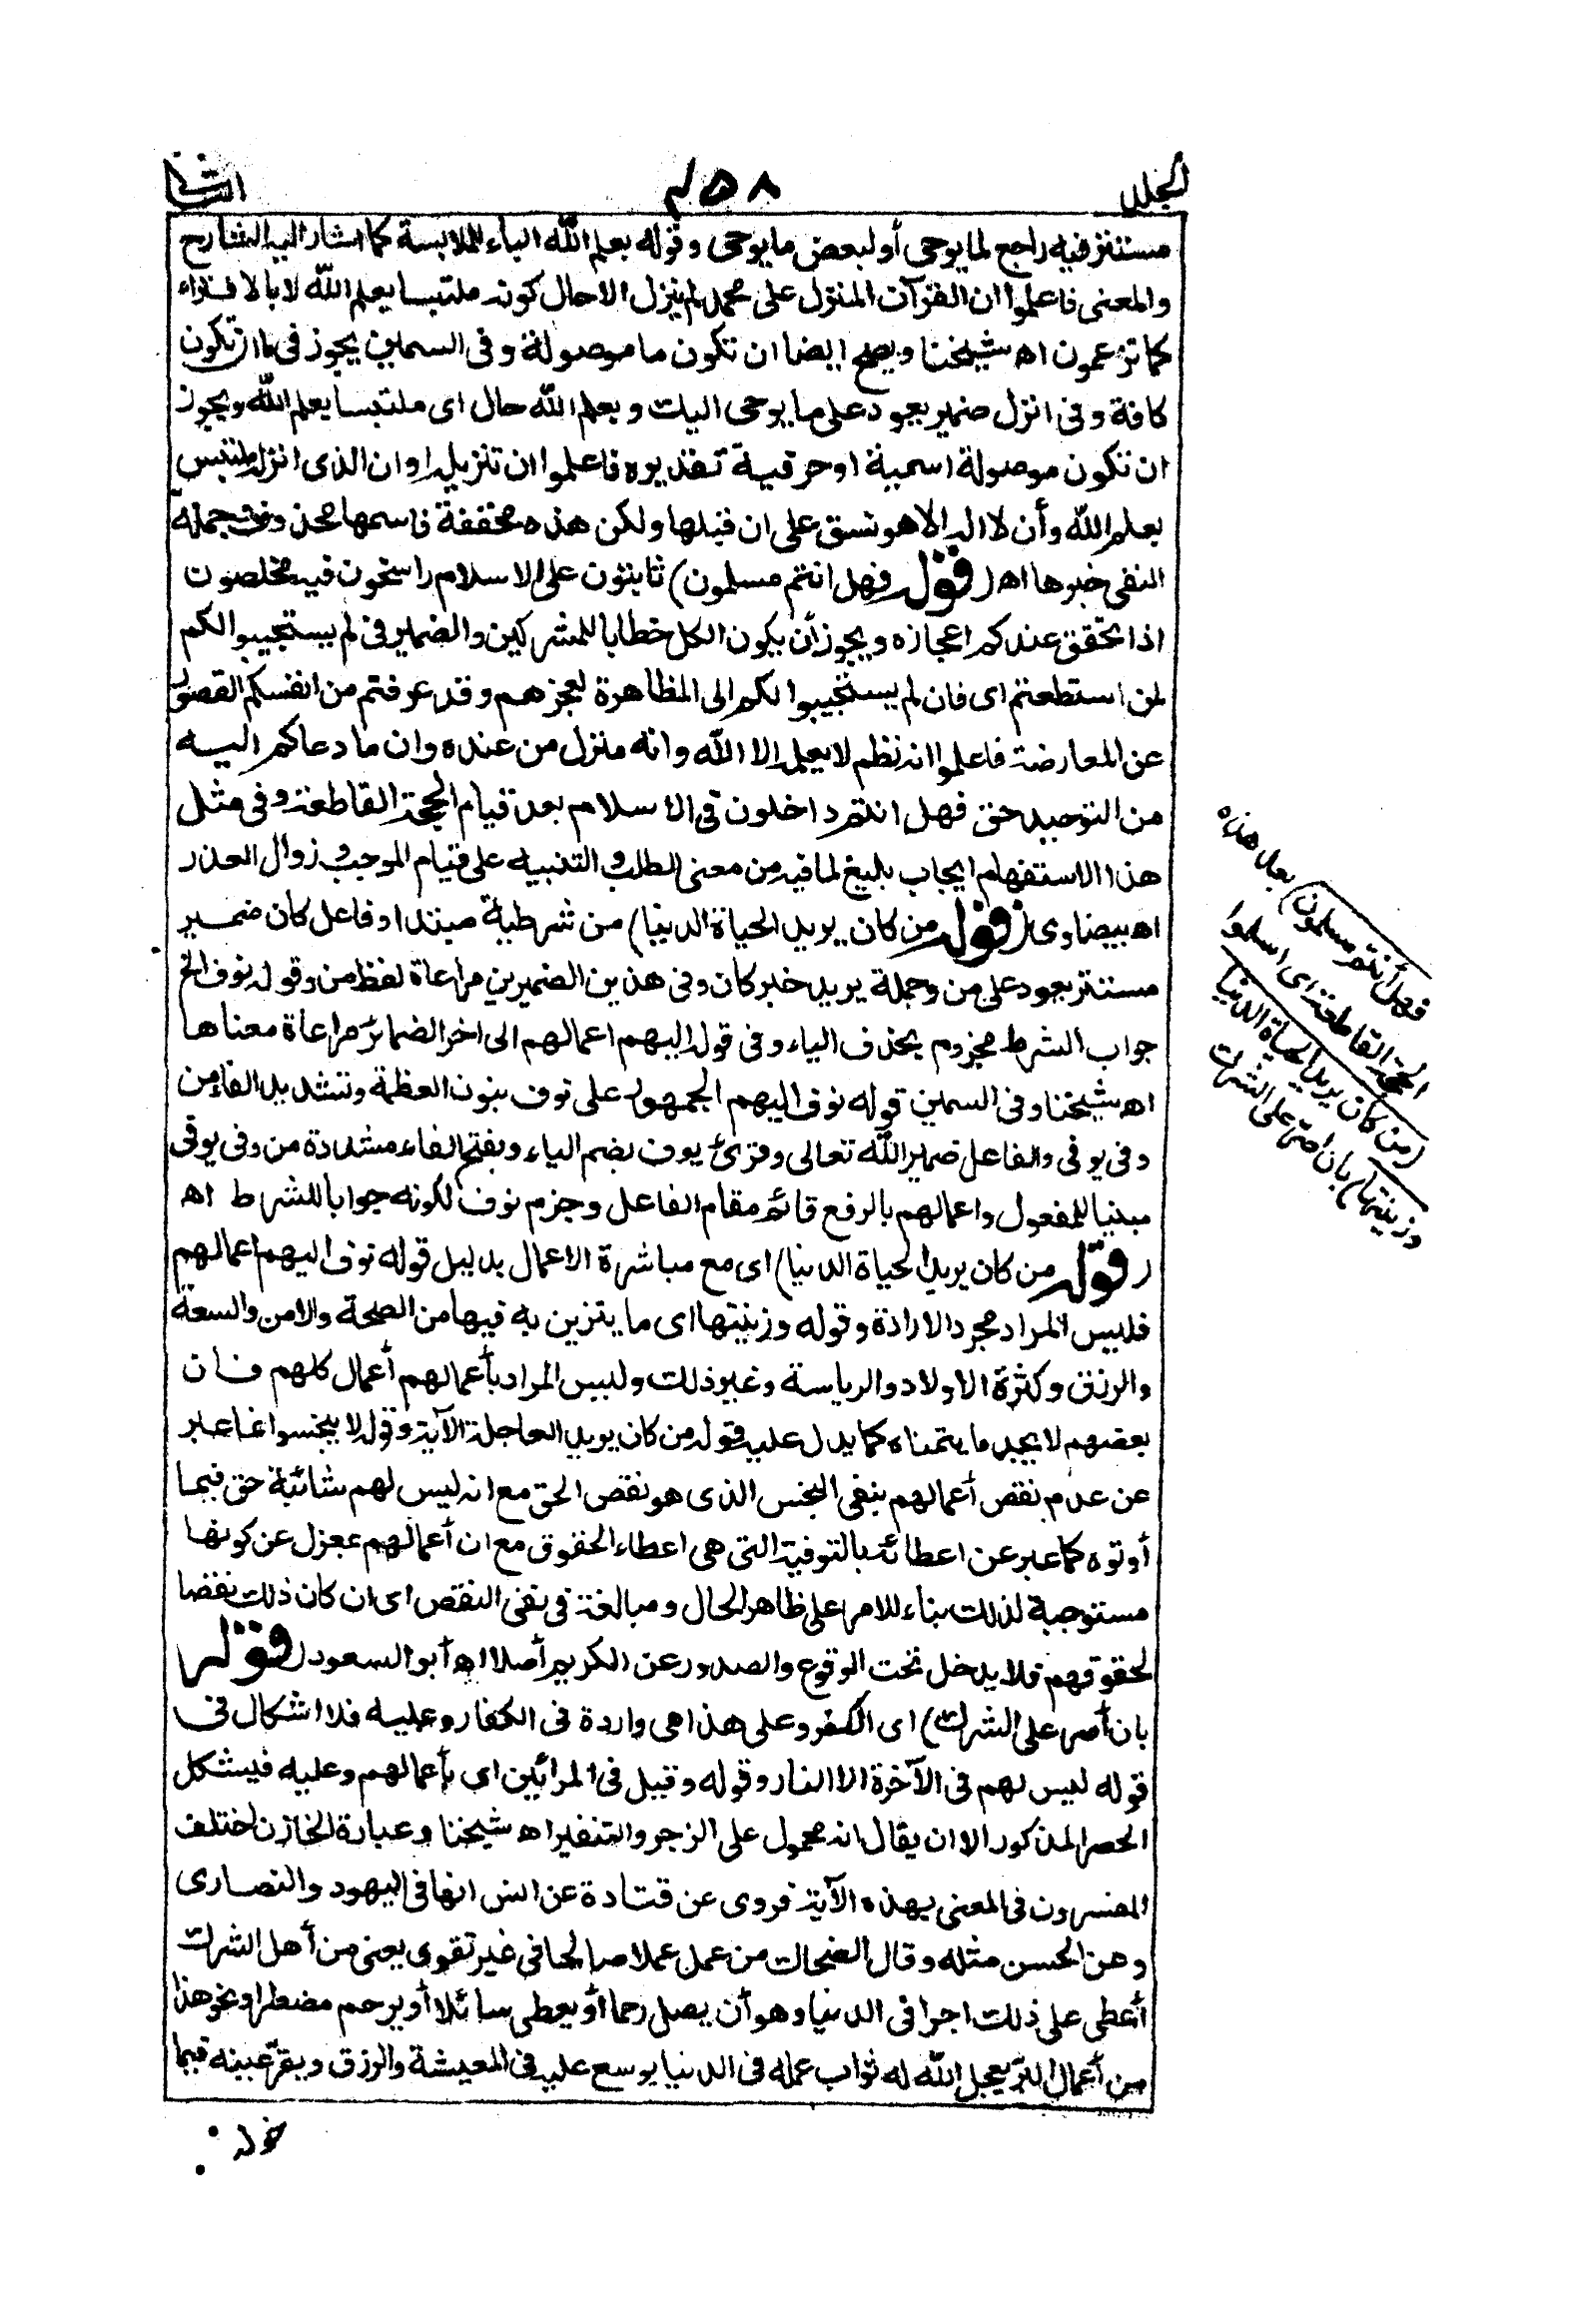 الجلد
٤٥٨
الثانى
مستتر فيه راجع لما يوحى أو لبعض ما يوحى وقوله بعلم الله الباء للملابسة كما اشار اليه الشارح
والمعنى فاعلموا ان القرآن المنزل على محمد لم ينزل الا حال كونه ملتبسا بعلم الله لا بالافتراء
كما تزعمون اه شيخنا ويصح ايضا ان تكون ما موصولة وفى السمين يجوز فى ما ان تكون
كافة وفى انزل ضمير يعود على ما يوحى اليك و بعلم الله حال اى ملتبسا بعلم الله ويجوز
ان تكون موصولة اسمية او حرفية تقديره فاعلموا ان تنزيله او ان الذى انزل ملتبس
بعلم الله وأن لا اله الا هو نسق على ان قبلها ولكن هذه مخففة فاسمها محذوف وجملة
النفى خبرها اه (قوله فهل انتم مسلمون) ثابتون على الاسلام راسخون فيه مخلصون
اذا تحقق عندكم اعجازه ويجوز أن يكون الكل خطابا للمشركين والضمير فى لم يستجيبوا لكم
لمن استطعتم اى فان لم يستجيبوا لكم الى المظاهرة لعجزهم وقد عرفتم من انفسكم القصور
عن المعارضة فاعلموا انه نظم لا يعلمه الا الله وانه منزل من عنده وان ما دعاكم اليه
من التوحيد حق فهل انتم داخلون فى الاسلام بعد قيام الحجة القاطعة وفى مثل
هذا الاستفهام ايجاب بليغ لما فيه من معنى الطلب والتنبيه على قيام الموجب و زوال العذر
اه بيضاوى (قوله من كان يريد الحياة الدنيا) من شرطية مبتدا وفاعل كان ضمير
مستتر يعود على من وجملة يريد خبر كان وفى هذين الضميرين مراعاة لفظ من وقوله نوف الخ
جواب الشرط مجزوم بحذف الياء وفى قوله اليهم اعمالهم الى اخر الضمائر مراعاة معناها
اه شيخنا وفى السمين قوله نوف اليهم الجمهور على نوف بنون العظمة وتشديد الفاء من
وفى يوفى والفاعل ضمير الله تعالى وقرئ يوف بضم الياء وبفتح الفاء مشددة من وفى يوفى
مبنيا للمفعول واعمالهم بالرفع قائم مقام الفاعل وجزم نوف لكونه جوابا للشرط اه
(قوله من كان يريد الحياة الدنيا) اى مع مباشرة الاعمال بدليل قوله نوف اليهم اعمالهم
فليس المراد مجرد الارادة وقوله وزينتها اى ما يتزين به فيها من الصحة والامن والسعة
والرزق وكثرة الاولاد والرياسة وغير ذلك وليس المراد بأعمالهم أعمال كلهم فان
بعضهم لا يجد ما يتمناه كما يدل عليه قوله من كان يريد العاجلة الآية وقوله لا يبخسوا انما عبر
عن عدم نقص أعمالهم بنفى البخس الذى هو نقص الحق مع انه ليس لهم شائبة حق فيما
أوتوه كما عبر عن اعطائه بالتوفية التى هى اعطاء الحقوق مع ان أعمالهم بمعزل عن كونها
مستوجبة لذلك بناء للامر على ظاهر الحال ومبالغة فى نفى النقص اى ان كان ذلك نقصا
لحقوقهم فلا يدخل تحت الوقوع والصدور عن الكريم أصلا اه أبو السعود (قوله
بان أصر على الشرك) اى الكفر وعلى هذا هى واردة فى الكفار وعليه فلا اشكال فى
قوله ليس لهم فى الآخرة الا النار وقوله وقيل فى المرائين اى بأعمالهم وعليه فيشكل
الحصر المذكور الا ان يقال انه محمول على الزجر والتنفير اه شيخنا وعبارة الخازن اختلف
المفسرون فى المعنى بهذه الآية فروى عن قتادة عن انس انها فى اليهود والنصارى
وعن الحسن مثله وقال الضحاك من عمل عملا صالحا فى غير تقوى يعنى من أهل الشرك
أعطى على ذلك اجرا فى الدنيا وهو أن يصل رحما أو يعطى سائلا أو يرحم مضطرا ونحو هذا
من أعمال البر يعجل الله له ثواب عمله فى الدنيا يوسع عليه فى المعيشة والرزق ويقر عينه فيما
خوله
فهل أنتم مسلمون) بعد هذه
الحجة القاطعة اى اسلموا
(من كان يريد الحياة الدنيا
وزينتها) بان اصر على الشرك